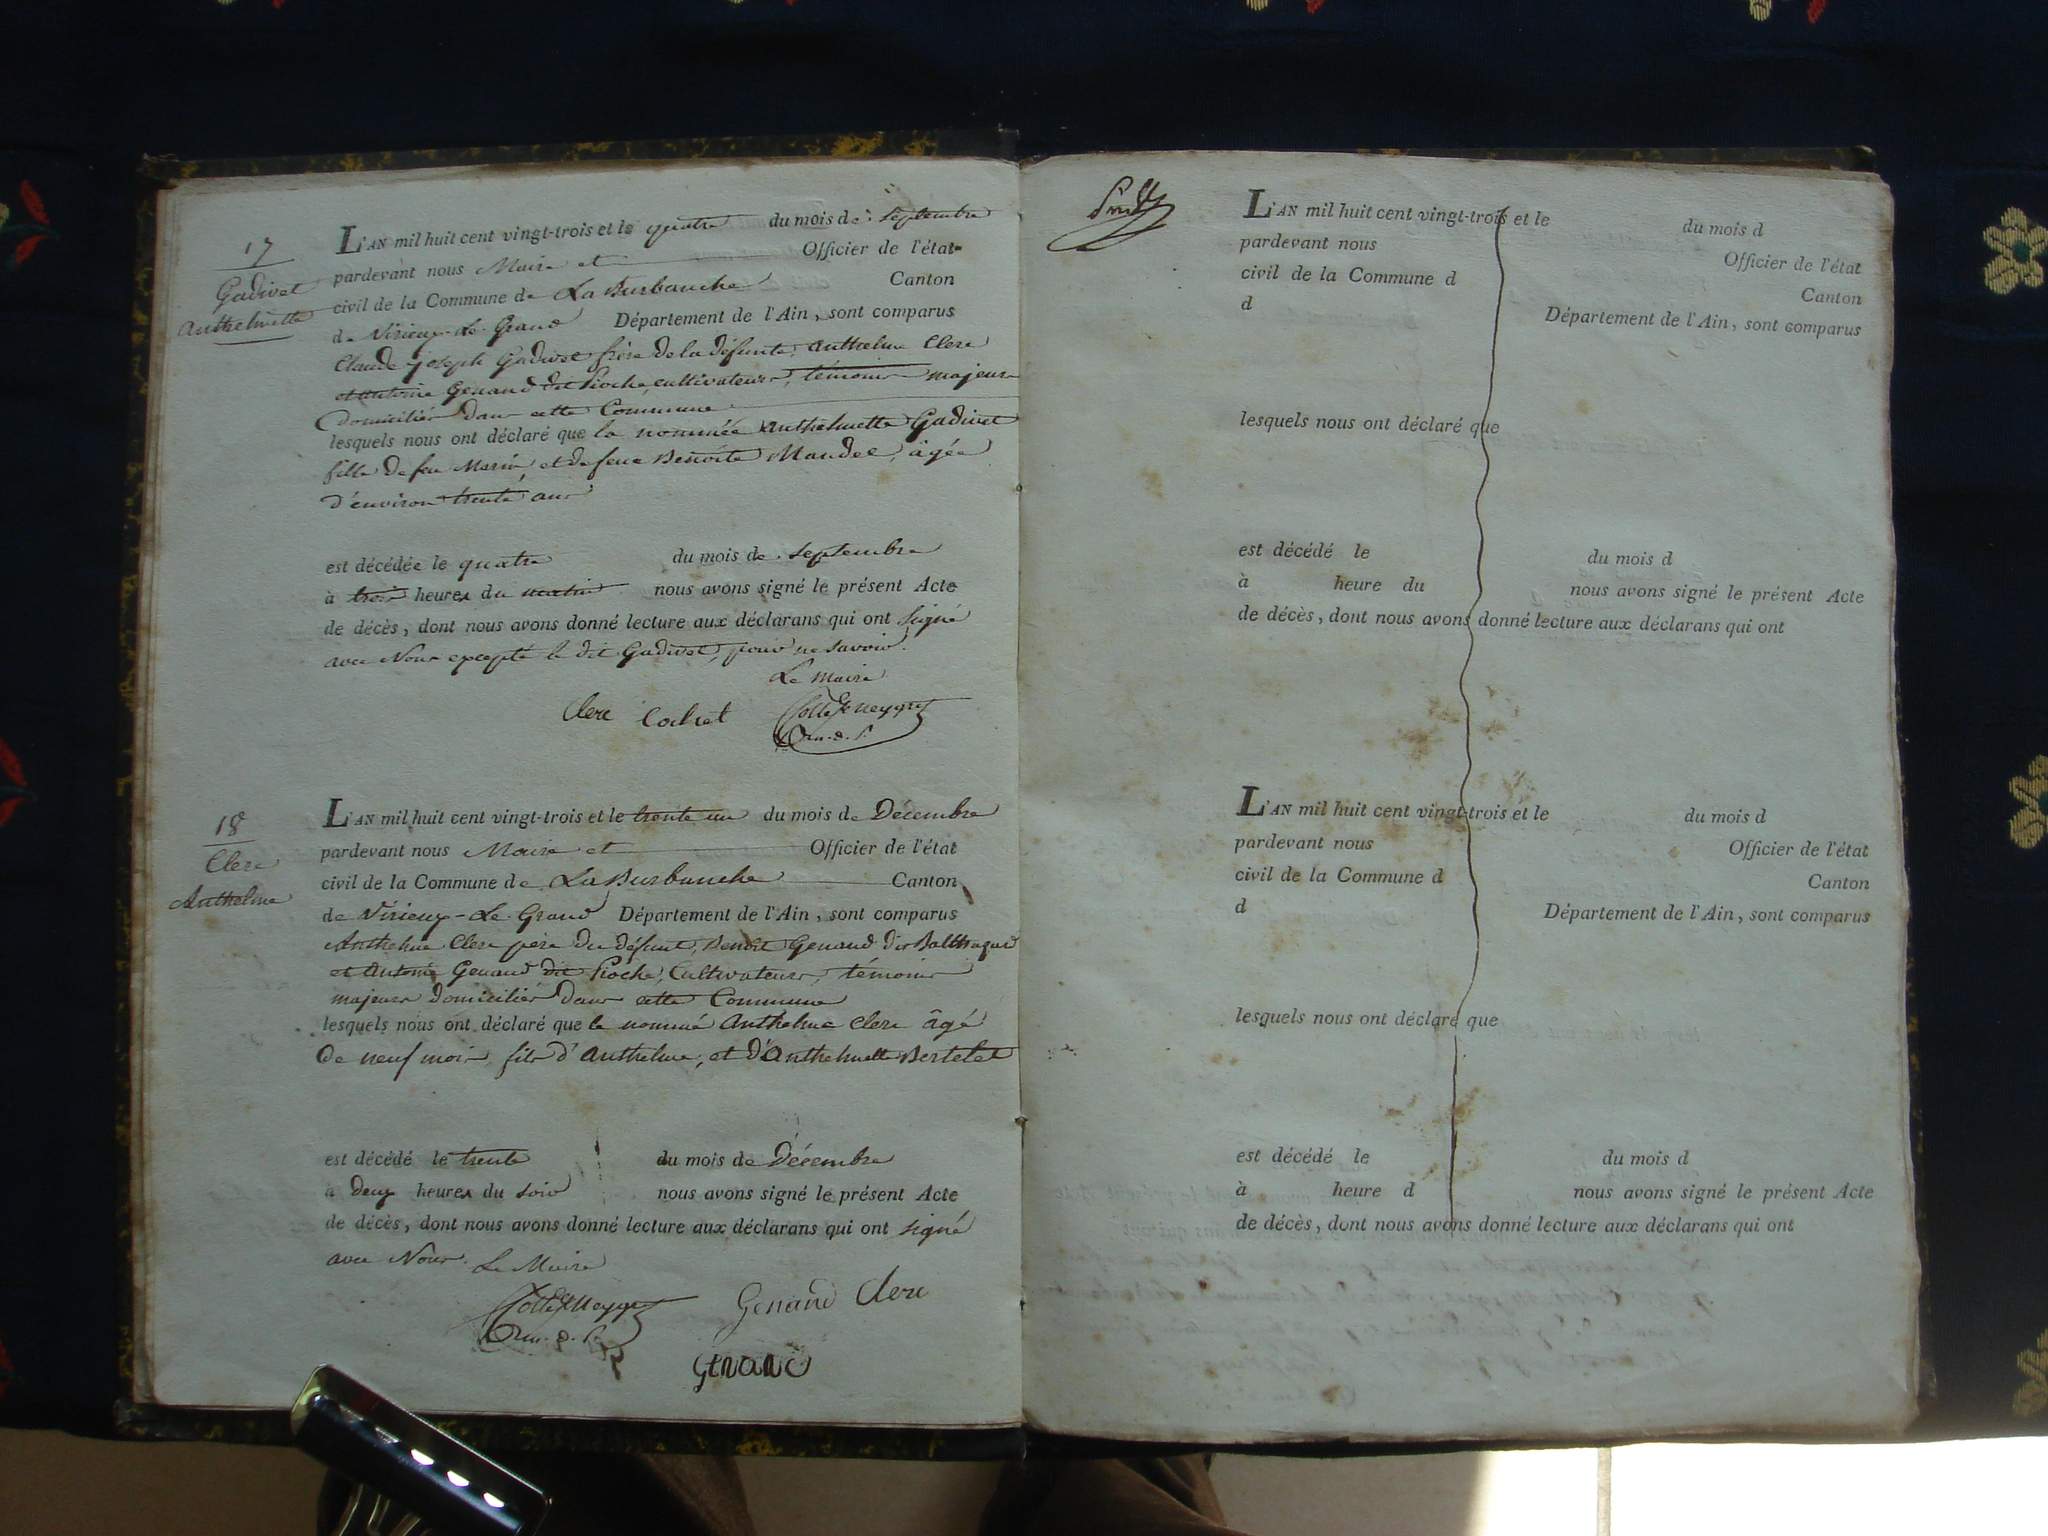 17
Gadivet
Anthelmette
L'AN mil huit cent vingt-trois et le quatre du mois de septembre
pardevant nous Maire et Officier de l'état
civil de la Commune de La Burbanche Canton
de Virieux-Le-Grand Département de l'Ain, sont comparus
Claude Joseph Gadivet frère de la défunte, Anthelme Clerc
et Antoine Genand dit Pioche, cultivateurs, témoins majeurs
domiciliés dans cette Commune
lesquels nous ont déclaré que la nommée Anthelmette Gadivet
fille de feu Marin et de feue Benoite Mandee, âgée
d'environ trente ans
est décédée le quatre du mois de septembre
à trois heures du matin nous avons signé le présent Acte
de décès, dont nous avons donné lecture aux déclarans qui ont signé
avec Nous excepté le dit Gadivet, pour ne savoir.
Le Maire
Clerc
18
Clerc
Anthelme
L'AN mil huit cent vingt-trois et le trente un du mois de Décembre
pardevant nous Maire et Officier de l'état
civil de la Commune de La Burbanche Canton
de Virieux-Le-Grand Département de l'Ain, sont comparus
Anthelme Clerc père du défunt, Benoit Genand dit Balthazard
et Antoine Genand dit Pioche, Cultivateurs, témoins
majeurs domiciliés dans cette Commune
lesquels nous ont déclaré que le nommé Anthelme Clerc âgé
de neuf mois, fils d'Anthelme, et d'Anthelmette Bertelet
est décédé le trente du mois de Décembre
à deux heures du soir nous avons signé le présent Acte
de décès, dont nous avons donné lecture aux déclarans qui ont signé
avec Nous. Le Maire
Genand Clerc
Genand
L'AN mil huit cent vingt-trois et le du mois d
pardevant nous Officier de l'état
civil de la Commune d Canton
d Département de l'Ain, sont comparus
lesquels nous ont déclaré que
est décédé le du mois d
à heure du nous avons signé le présent Acte
de décès, dont nous avons donné lecture aux déclarans qui ont
L'AN mil huit cent vingt-trois et le du mois d
pardevant nous Officier de l'état
civil de la Commune d Canton
d Département de l'Ain, sont comparus
lesquels nous ont déclaré que
est décédé le du mois d
à heure d nous avons signé le présent Acte
de décès, dont nous avons donné lecture aux déclarans qui ont